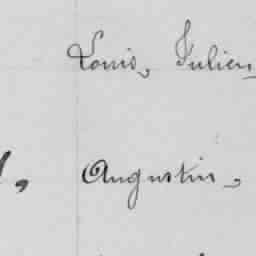 Louis, Julien
Augustin,